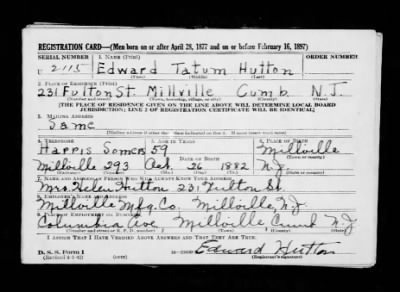 REGISTRATION CARD—(Men born on or after April 28, 1877 and on or before February 16, 1897)
SERIAL NUMBER 1. NAME (Print) ORDER NUMBER
U 2115 Edward Tatum Hutton
(First) (Middle) (Last)
2. PLACE OF RESIDENCE (Print)
231 Fulton St. Millville Cumb. N.J.
(Number and street) (Town, township, village, or city) (County) (State)
[THE PLACE OF RESIDENCE GIVEN ON THE LINE ABOVE WILL DETERMINE LOCAL BOARD
JURISDICTION; LINE 2 OF REGISTRATION CERTIFICATE WILL BE IDENTICAL]
3. MAILING ADDRESS
Same
[Mailing address if other than place indicated on line 2. If same insert word same]
4. TELEPHONE 5. AGE IN YEARS 6. PLACE OF BIRTH
Harris Somers 59 Millville
DATE OF BIRTH (Town or county)
Millville 293 26 1882 N.J.
7. NAME AND ADDRESS OF PERSON WHO WILL ALWAYS KNOW YOUR ADDRESS
Mrs. Helen Hutton 231 Fulton St.
8. EMPLOYER'S NAME AND ADDRESS
Millville Mfg. Co. Millville, N.J.
9. PLACE OF EMPLOYMENT OR BUSINESS
Columbia Ave Millville Cumb N.J.
(Number and street or R. F. D. number) (Town) (County) (State)
I AFFIRM THAT I HAVE VERIFIED ABOVE ANSWERS AND THAT THEY ARE TRUE.
Edward Hutton
D. S. S. Form 1 (Registrant's signature)
(Revised 4-1-42) (over)